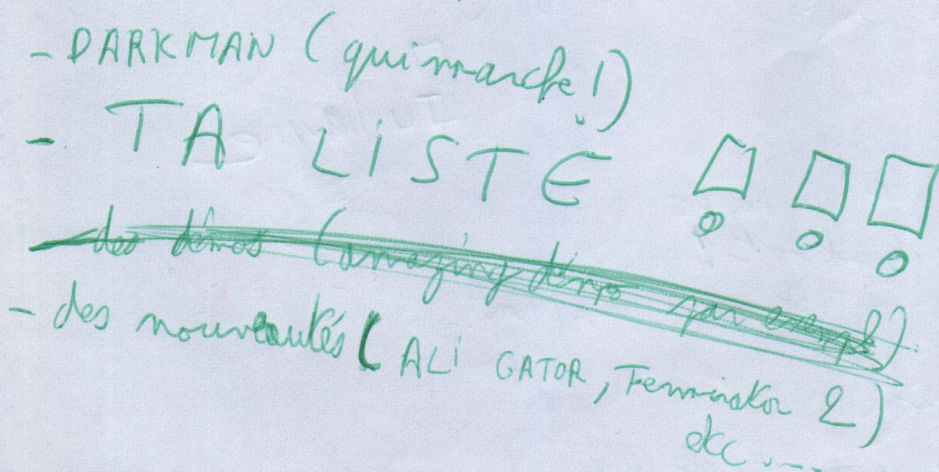 - DARKMAN (qui marche!)
- TA LISTE !!!
- des démos (amazing démo par exemple)
- des nouveautés (ALI GATOR, Terminator 2)
etc....